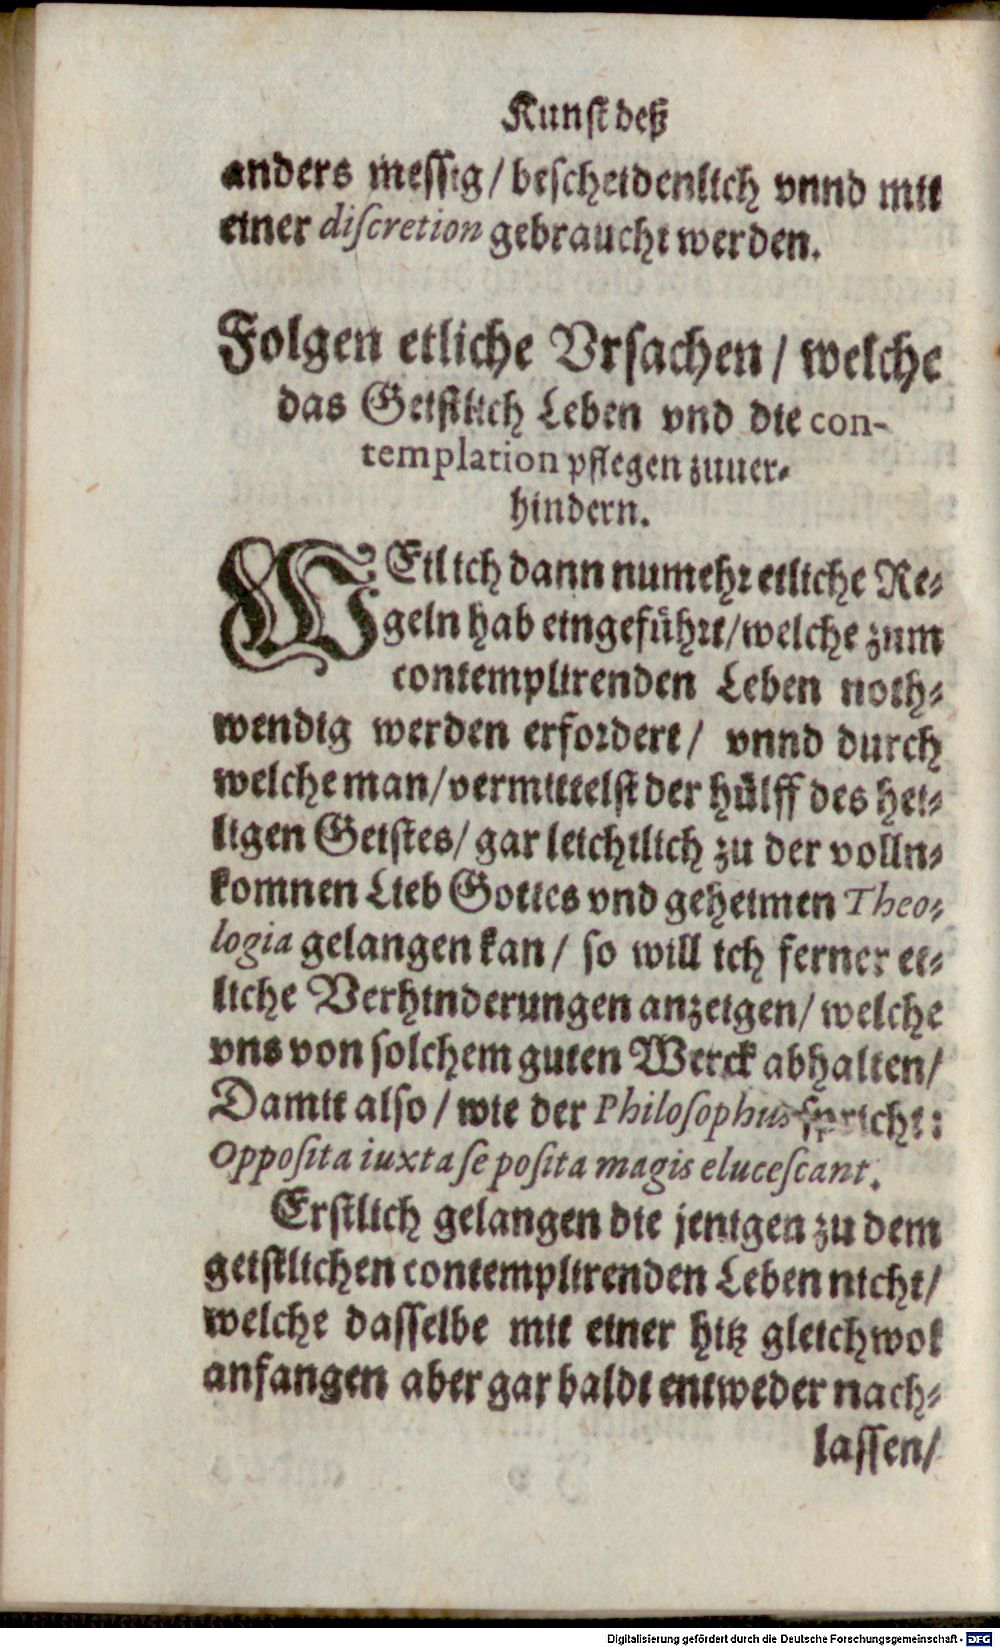 Kunſt deß
anders meſſig / beſcheidenlich vnnd mit
einer diſcretion gebraucht werden.
Folgen etliche Vrſachen / welche
das Geiſtlich Leben vnd die con-
templation pflegen zuuer-
hindern.
WEil ich dann numehr etliche Re-
geln hab eingeführt / welche zum
contemplirenden Leben noth-
wendig werden erfordert / vnnd durch
welche man / vermittelſt der hülff des hei-
ligen Geiſtes / gar leichtlich zu der volln-
komnen Lieb Gottes vnd geheimen Theo-
logia gelangen kan / ſo will ich ferner et-
liche Verhinderungen anzeigen / welche
vns von ſolchem guten Werck abhalten /
Damit alſo / wie der Philoſophus ſpricht:
Oppoſita iuxta ſe poſita magis eluceſcant.
Erſtlich gelangen die jenigen zu dem
geiſtlichen contemplirenden Leben nicht /
welche daſſelbe mit einer hitz gleichwol
anfangen aber gar baldt entweder nach-
laſſen /
Digitalisierung gefördert durch die Deutsche Forschungsgemeinschaft - DFG